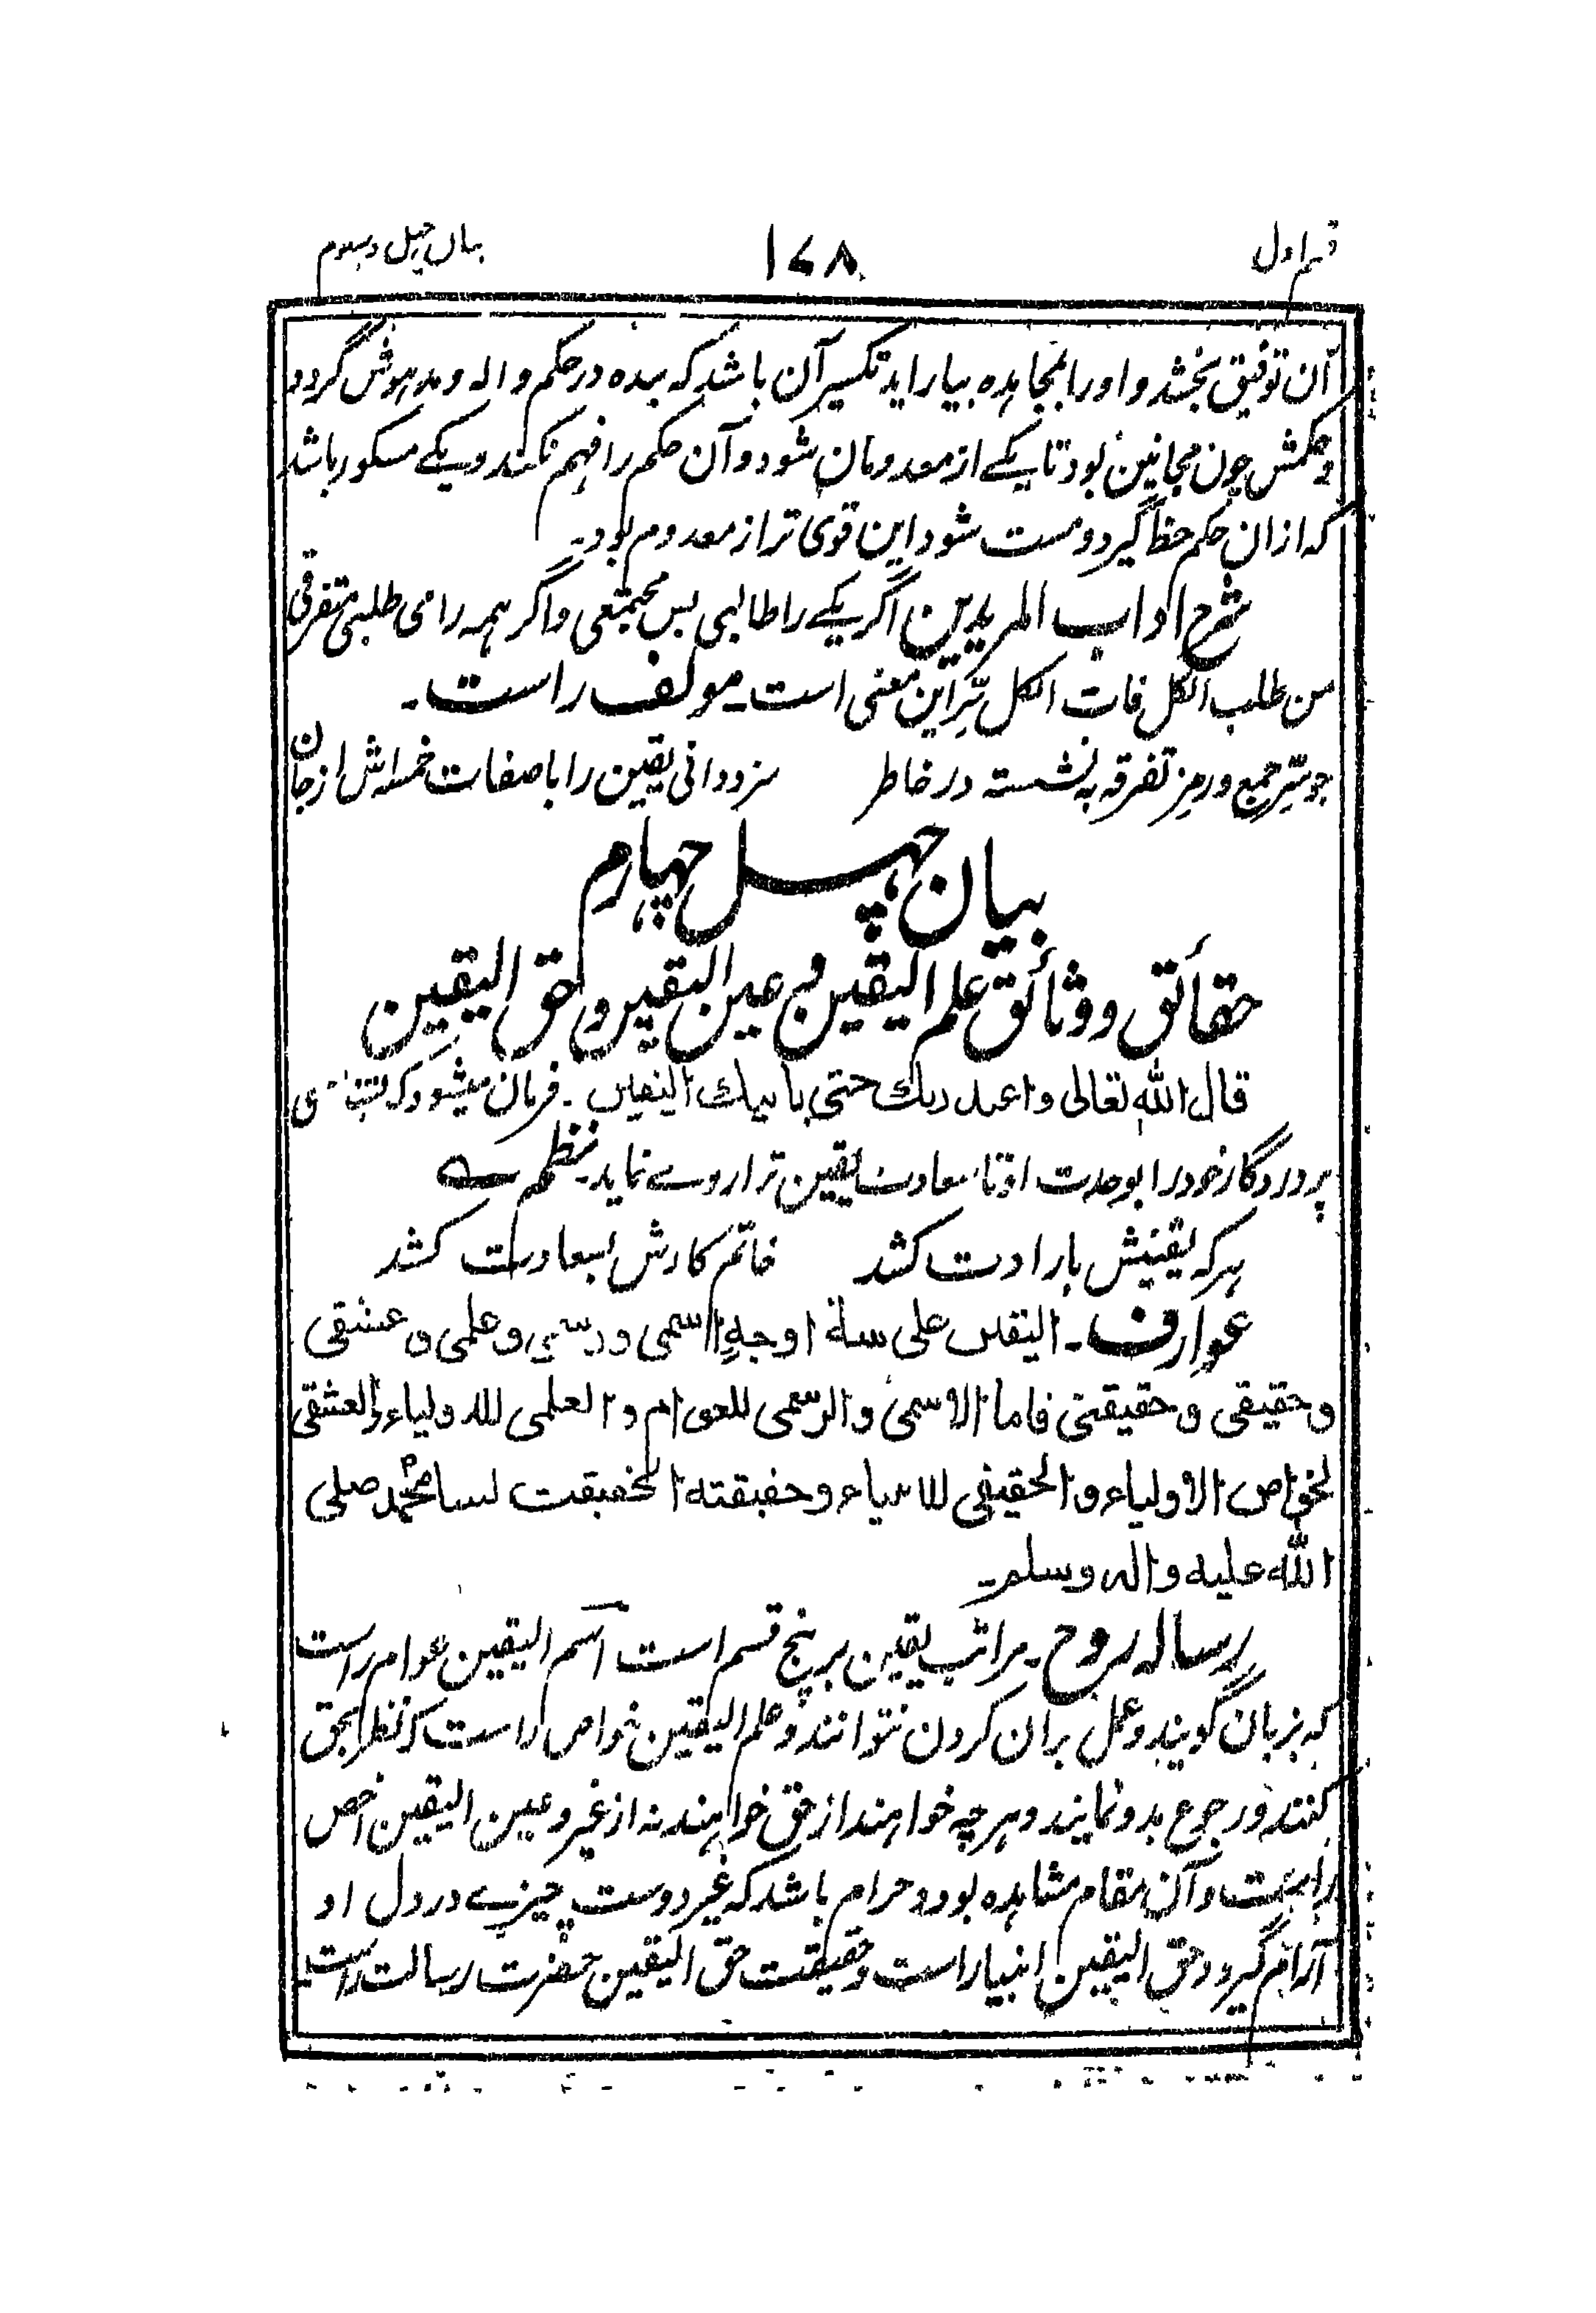 قسم اول ۱۷۸ بیان چہل و سوم
آن توفیق بخشد و اورا بمجاہدہ بیاراید تکسیر آن باشد کہ بندہ در حکم والہ و مدہوش گردد
و حکمش چون مجانین بود تا یکے از معدومان شود و آن حکم را فہم نکند و یکے مسکور باشد
کہ ازان حکم حظ گیرد و مست شود این قوی تر از معدوم بود۔
شرح اداب المریدین اگر یکے را طالبی بس مجتمعی و اگر ہمہ را می طلبی متفرقی
من طلب الکل فات الکل سِرّ این معنی است۔ مولف راست۔
چو سِرّ جمع و رمز تفرقہ بنشستہ در خاطر سزد دانی یقین را با صفات خمسہ اش از جان
بیان چہل چہارم
حقائق و وثائق علم الیقین و عین الیقین و حق الیقین
قال اللہ تعالی واعبد ربك حتی یاتیك الیقین۔ فرمان میشود کہ
پروردگار خود را بوحدت او تا سعادت یقین ترا روے نماید۔ نظم
ہر کہ یقینش بارادت کشد خاتم کارش بسعادت کشد
عوارف۔ الیقین علی ستة اوجهٍ اسمی و رسمی و علمی و عشقی
و حقیقی و حقیقتی فاما الاسمی و الرسمی للعوام و العلمی للاولیاء و العشقی
لخواص الاولیاء و الحقیقی للانبیاء و حقیقته الحقیقت لسیدنا محمد صلی
اللہ علیه و اله وسلم۔
رسالہ روح۔ مراتب یقین بر پنج قسم است اسم الیقین عوام راست
کہ بزبان گویند و عمل بران کردن نتوانند و علم الیقین خواص راست کہ نظر بحق
کنند و رجوع بدو نمایند و ہر چہ خواہند از حق خواہند نہ از غیر و عین الیقین اخص
راست و آن مقام مشاہدہ بود و حرام باشد کہ غیر دوست چیزے در دل او
آرام گیرد و حق الیقین انبیا راست و حقیقت حق الیقین حضرت رسالت راست